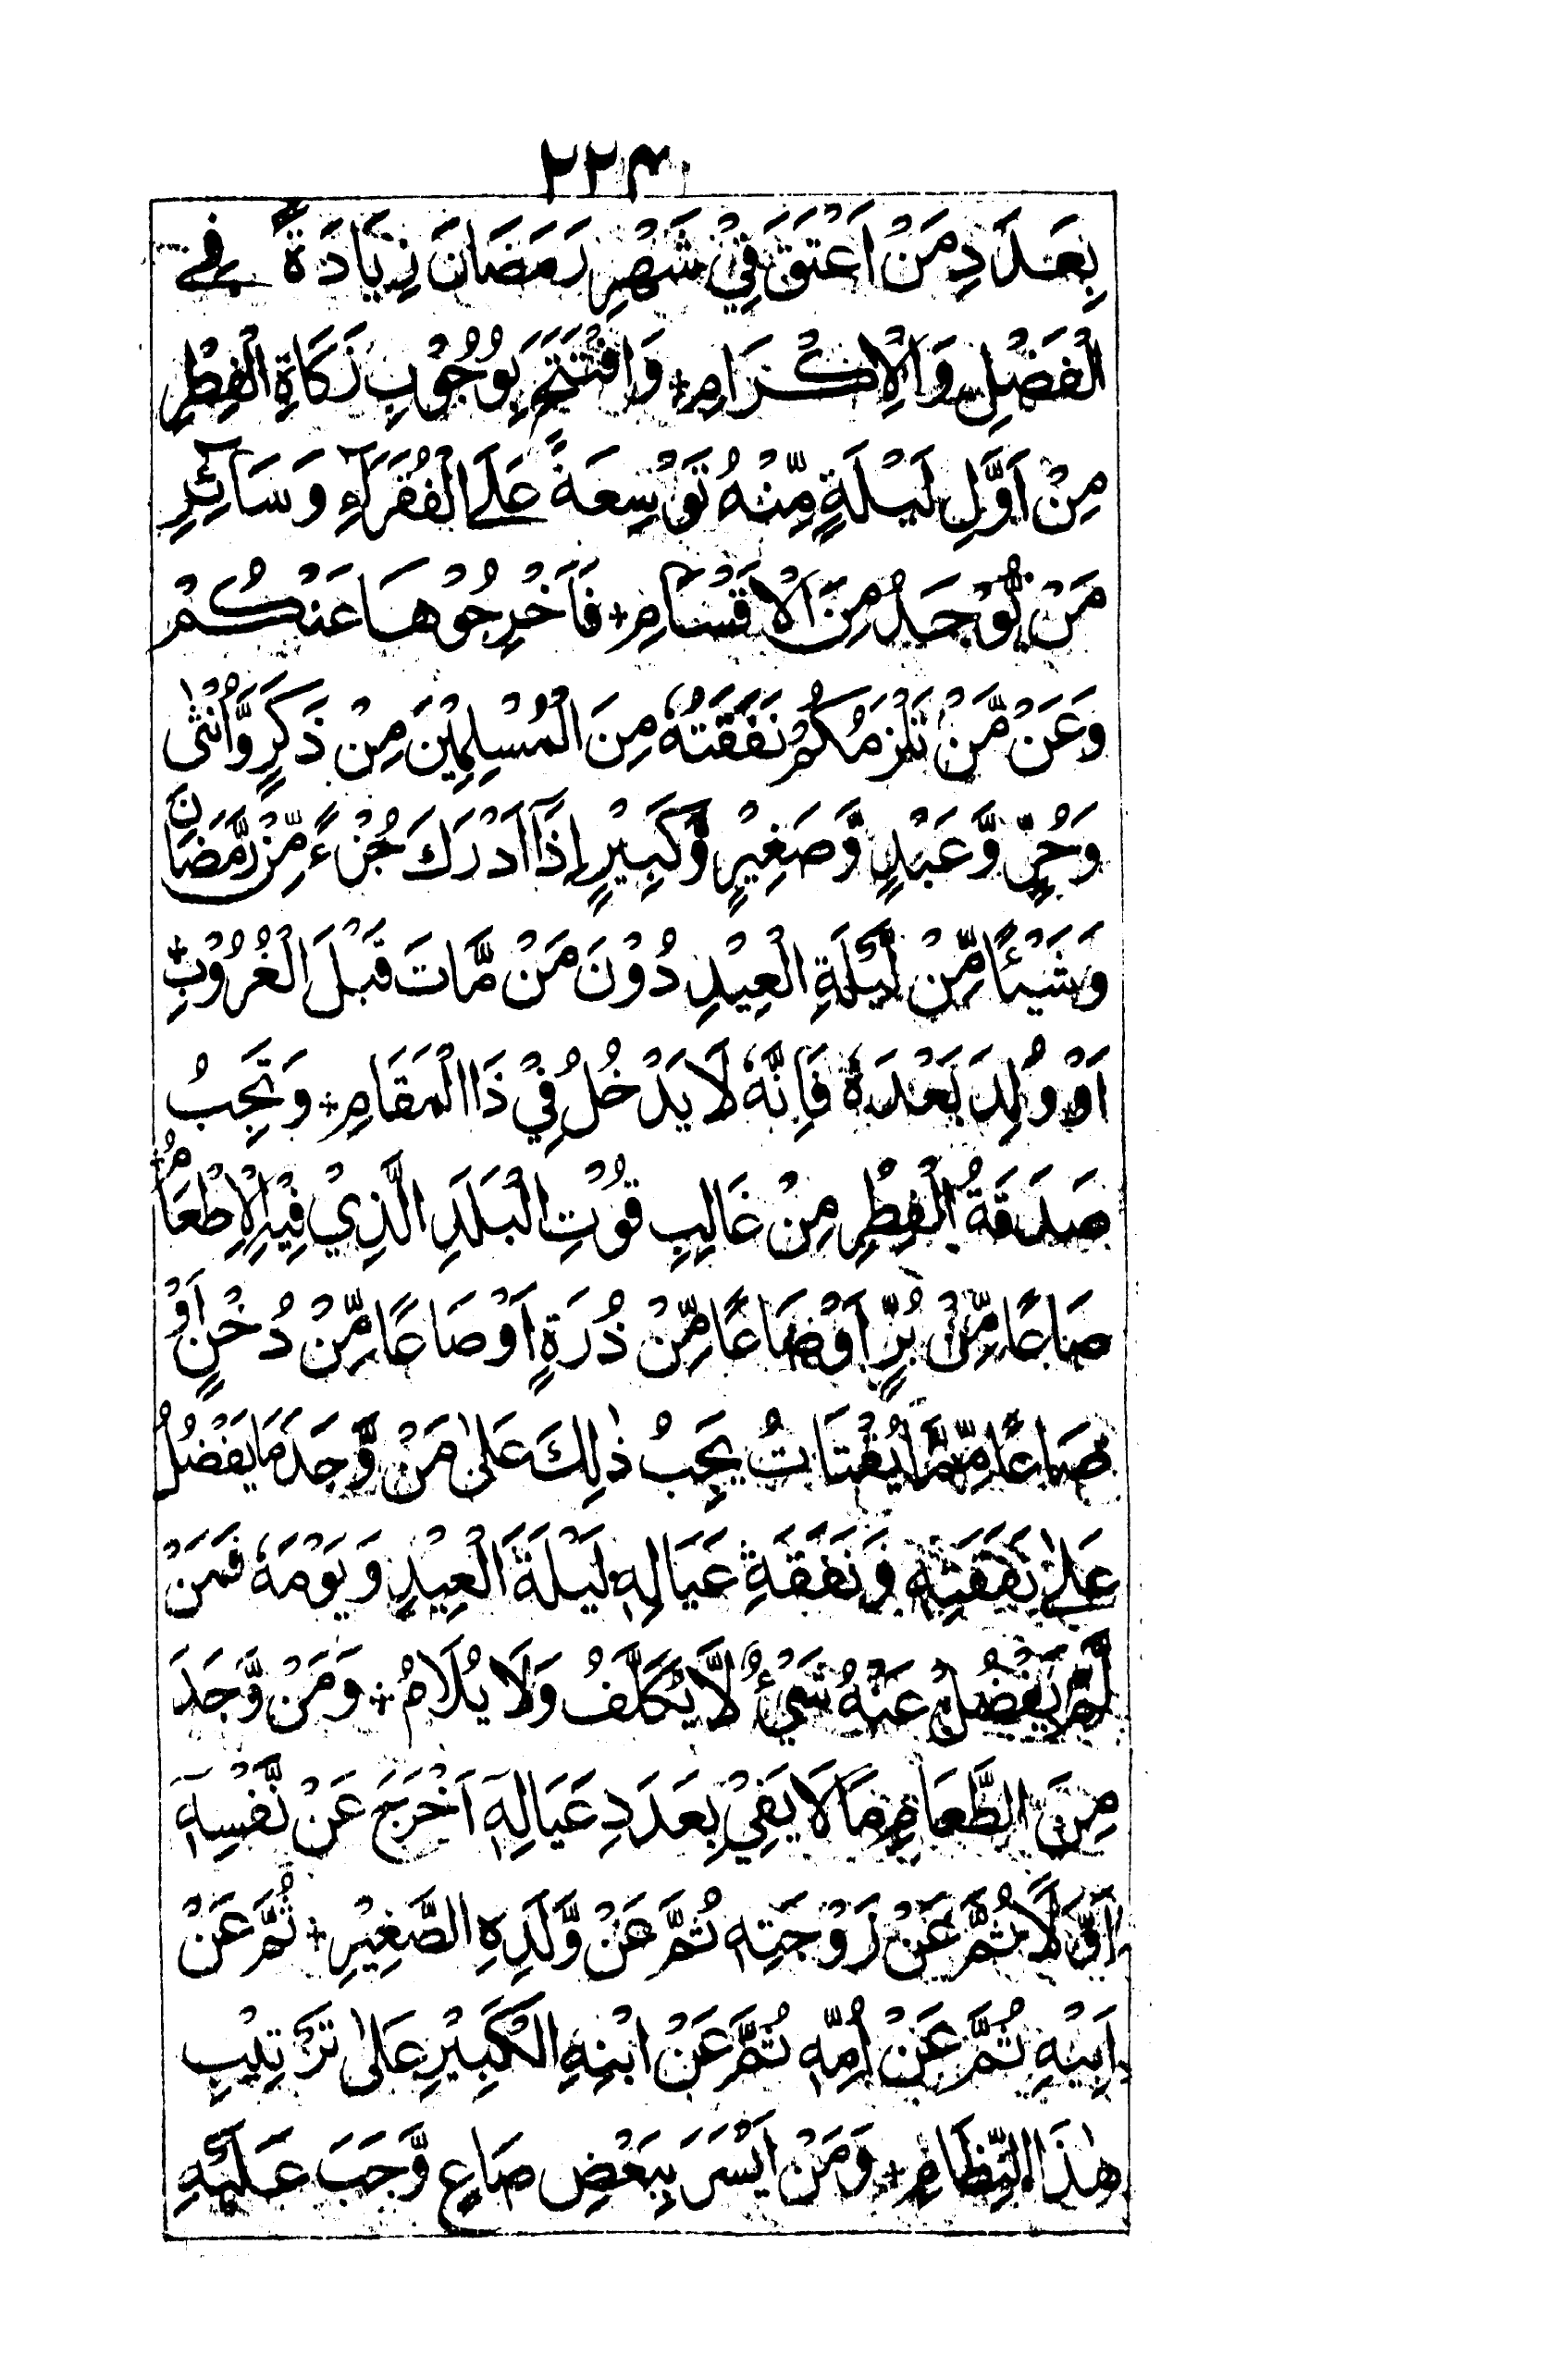 ٢٢٣
بِعَدَدِ مَنْ اَعْتَقَ فِيْ شَهْرِ رَمَضَانَ زِيَادَةً فِے
الْفَضْلِ وَالْاِكْرَامِ + وَافْتَتَحَ بِوُجُوْبِ زَكَاةِ الْفِطْرِ
مِنْ اَوَّلِ لَيْلَةٍ مِّنْهُ تَوْسِعَةً عَلَے الْفُقَرَآءِ وَسَآئِرِ
مَنْ يُّوْجَدُ مِنَ الْاَقْسَامِ + فَاَخْرِجُوْهَا عَنْكُمْ
وَعَنْ مَّنْ تَلْزَمُكُمْ نَفَقَتُهٗ مِنَ الْمُسْلِمِيْنَ مِنْ ذَكَرٍ وَّاُنْثٰى
وَحُرٍّ وَّعَبْدٍ وَّصَغِيْرٍ وَّكَبِيْرٍ اِذَآ اَدْرَكَ جُزْءً مِّنْ رَّمَضَانَ
وَشَيْئًا مِّنْ لَّيْلَةِ الْعِيْدِ دُوْنَ مَنْ مَّاتَ قَبْلَ الْغُرُوْبِ +
اَوْ وُلِدَ بَعْدَهٗ فَاِنَّهٗ لَا يَدْخُلُ فِيْ ذَا الْمَقَامِ + وَتَجِبُ
صَدَقَةُ الْفِطْرِ مِنْ غَالِبِ قُوْتِ الْبَلَدِ الَّذِيْ فِيْهِ الْاِطْعَامُ +
صَاعًا مِّنْ بُرٍّ اَوْ صَاعًا مِّنْ ذُرَةٍ اَوْ صَاعًا مِّنْ دُخْنٍ اَوْ
صَاعًا مِّمَّا يُقْتَاتُ يَجِبُ ذٰلِكَ عَلٰى مَنْ وَّجَدَ مَا يَفْضُلُ
عَلٰے نَفَقَتِهٖ وَنَفَقَةِ عَيَالِهٖ لَيْلَةَ الْعِيْدِ وَيَوْمَهٗ فَمَنْ
لَّمْ يَفْضُلْ عَنْهُ شَيْءٌ لَّا يُكَلَّفُ وَلَا يُلَامُ + وَمَنْ وَّجَدَ
مِنَ الطَّعَامِ مَا لَا يَفِيْ بِعَدَدِ عَيَالِهٖٓ اَخْرَجَ عَنْ نَّفْسِهٖٓ
اَوَّلًا ثُمَّ عَنْ زَوْجَتِهٖ ثُمَّ عَنْ وَّلَدِهِ الصَّغِيْرِ + ثُمَّ عَنْ
اَبِيْهِ ثُمَّ عَنْ اُمِّهٖ ثُمَّ عَنْ ابْنِهِ الْكَبِيْرِ عَلٰى تَرْتِيْبِ
هٰذَا النِّظَامِ + وَمَنْ اَيْسَرَ بِبَعْضِ صَاعٍ وَّجَبَ عَلَيْهِ